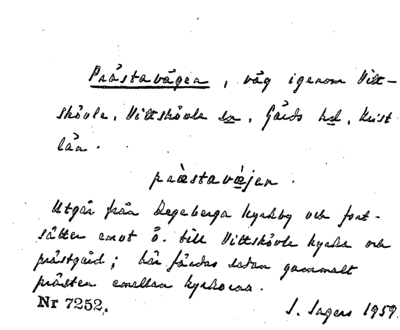 Prästavägen, väg igenom Vitt-
skövle, Vittskövle sn, Gärds hd, Krist
län.
präѐstavä̀jen.
Utgår från Degeberga kyrkby och fort-
sätter emot ö. till Vittskövle kyrka och
prästgård; här färdas sedan gammalt
prästen emellan kyrkorna.
Nr 7252. I. Ingers 1959.